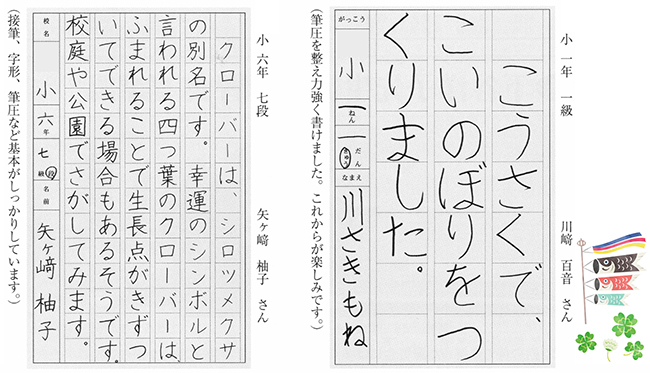 小 一年 一級
川﨑 百音 さん
こうさくで、
こいのぼりをつ
くりました。
がっこう
小
一
ねん
一
だん
きゅう
なまえ
川さきもね
(筆圧を整え力強く書けました。これからが楽しみです。)
小 六年 七段
矢ヶ﨑 柚子 さん
クローバーは、シロツメクサ
の別名です。幸運のシンボルと
言われる四つ葉のクローバーは、
ふまれることで生長点がきずつ
いてできる場合もあるそうです。
校庭や公園でさがしてみます。
校名
小
六
年
七
級段
名前
矢ヶ﨑 柚子
(接筆、字形、筆圧など基本がしっかりしています。)